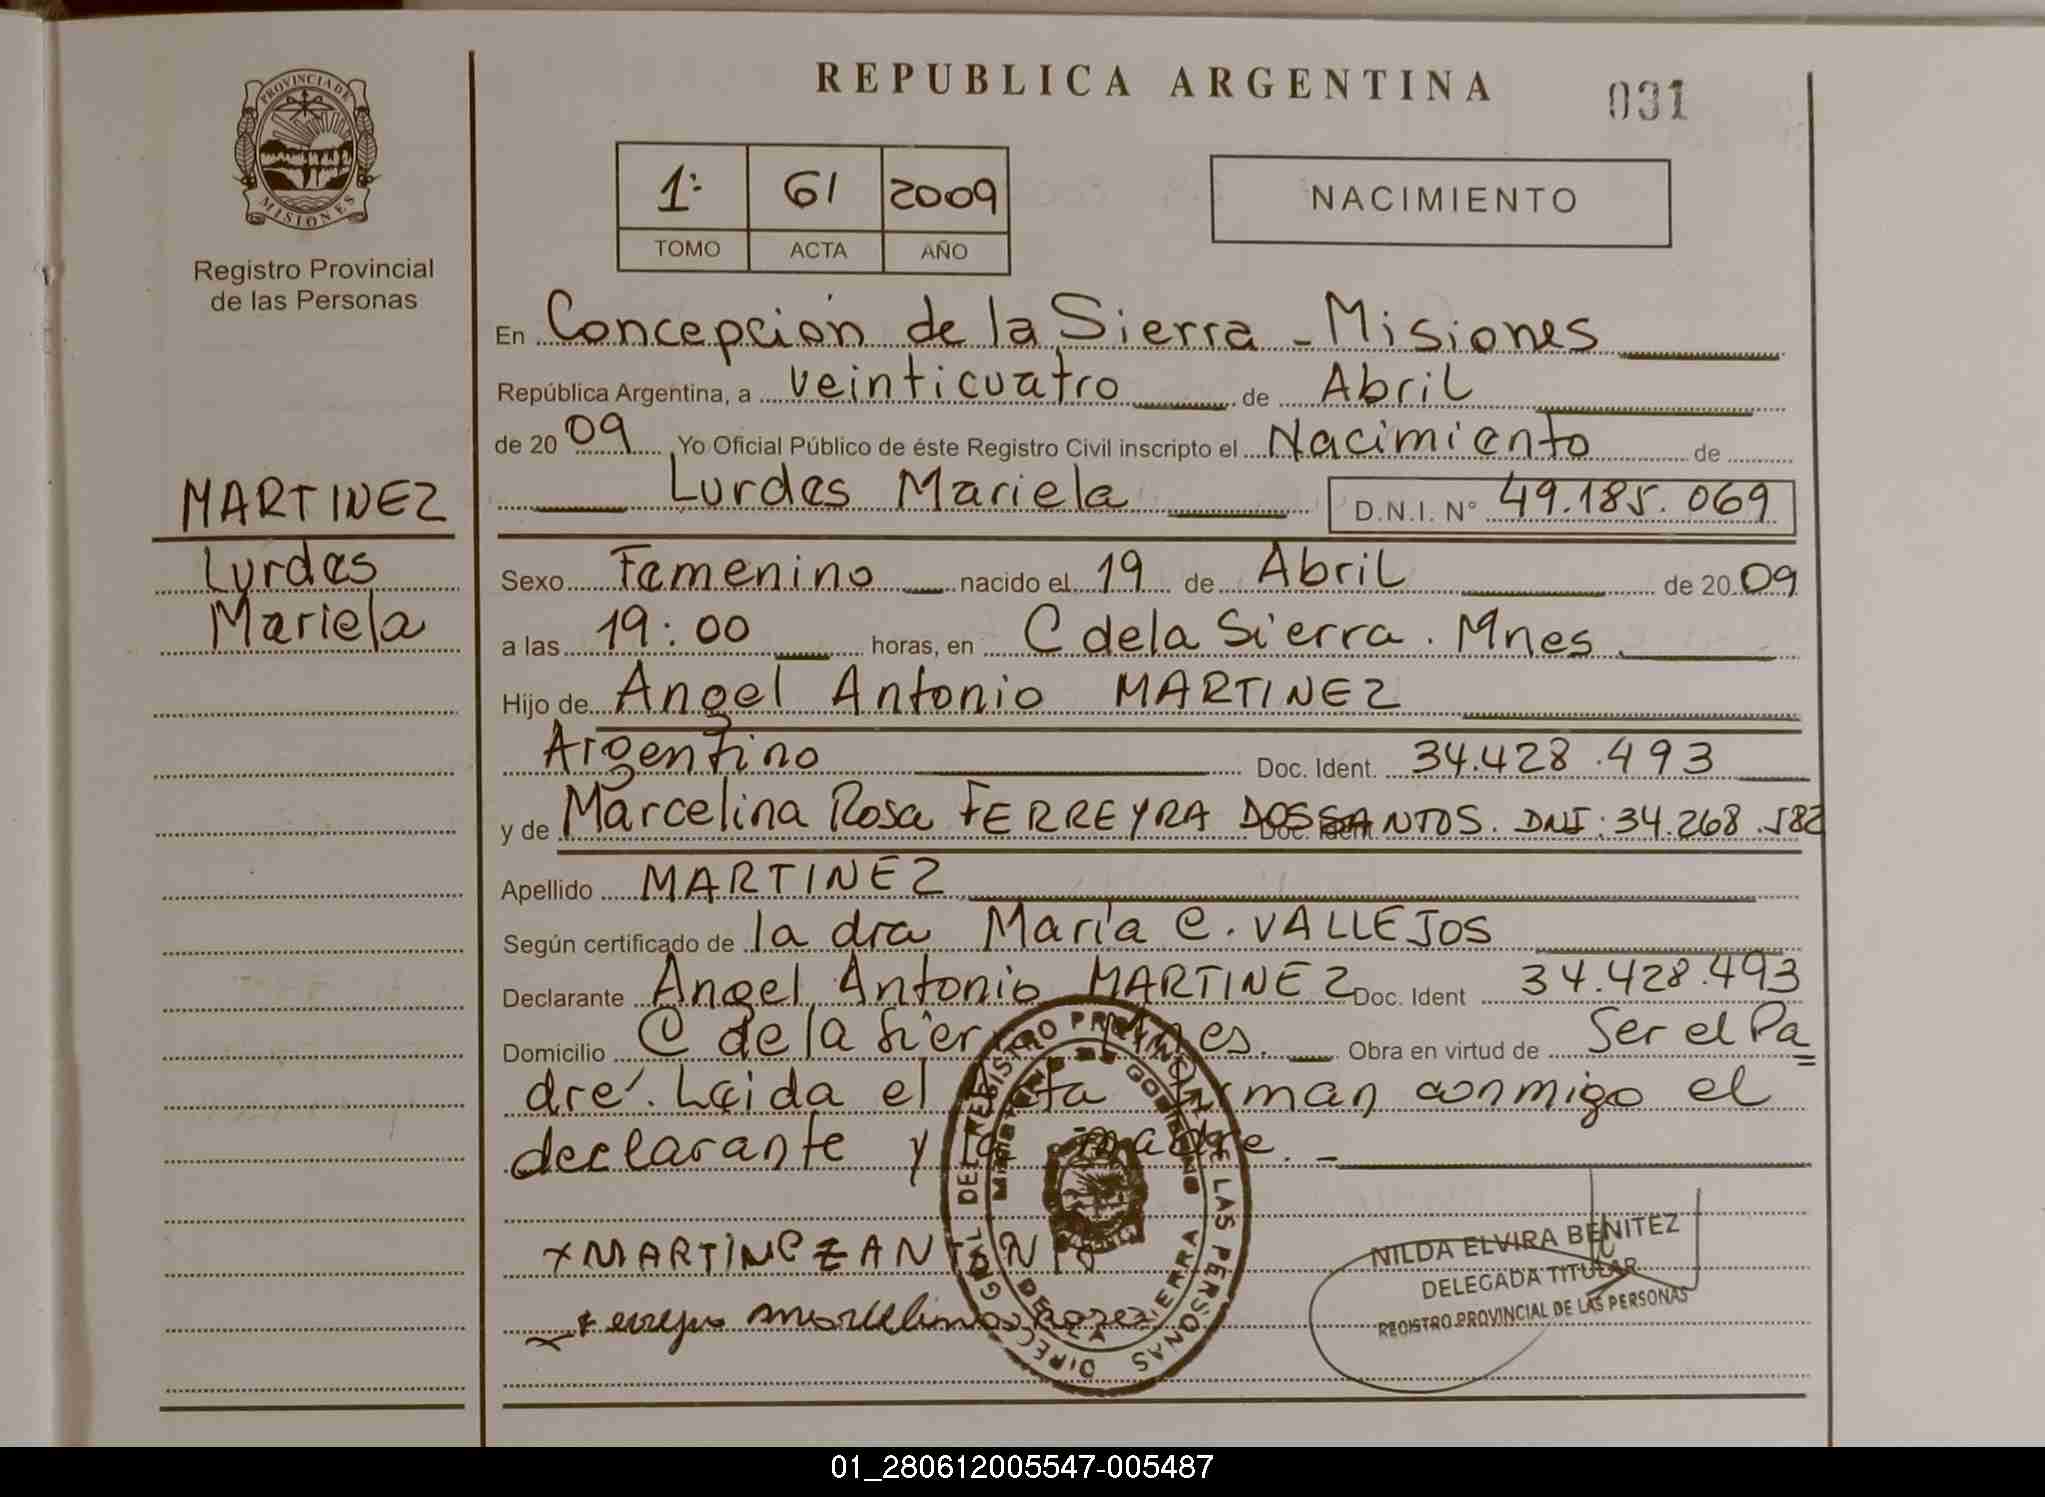 REPUBLICA ARGENTINA
031
PROVINCIA DE MISIONES
Registro Provincial
de las Personas
1º 61 2009
TOMO ACTA AÑO
NACIMIENTO
En Concepción de la Sierra - Misiones
República Argentina, a veinticuatro de Abril
de 2009 Yo Oficial Público de éste Registro Civil inscripto el Nacimiento de
Lurdes Mariela D.N.I. N° 49.185.069
MARTINEZ
Lurdes
Mariela
Sexo Femenino nacido el 19 de Abril de 2009
a las 19:00 horas, en C de la Sierra. Mnes
Hijo de Angel Antonio MARTINEZ
Argentino Doc. Ident. 34.428.493
y de Marcelina Rosa FERREYRA DOSSANTOS. DNI: 34.268.582
Apellido MARTINEZ
Según certificado de la dra María C. VALLEJOS
Declarante Angel Antonio MARTINEZ Doc. Ident 34.428.493
Domicilio C de la Sierra Mnes. Obra en virtud de Ser el Pa=
dre. Leida el acta firman conmigo el
declarante y la madre. -
x MARTINEZ ANTONIO
x marcelina
DIRECC GRAL DEL REGISTRO PROVINCIAL DE LAS PERSONAS
NILDA ELVIRA BENITEZ
DELEGADA TITULAR
REGISTRO PROVINCIAL DE LAS PERSONAS
01_280612005547-005487